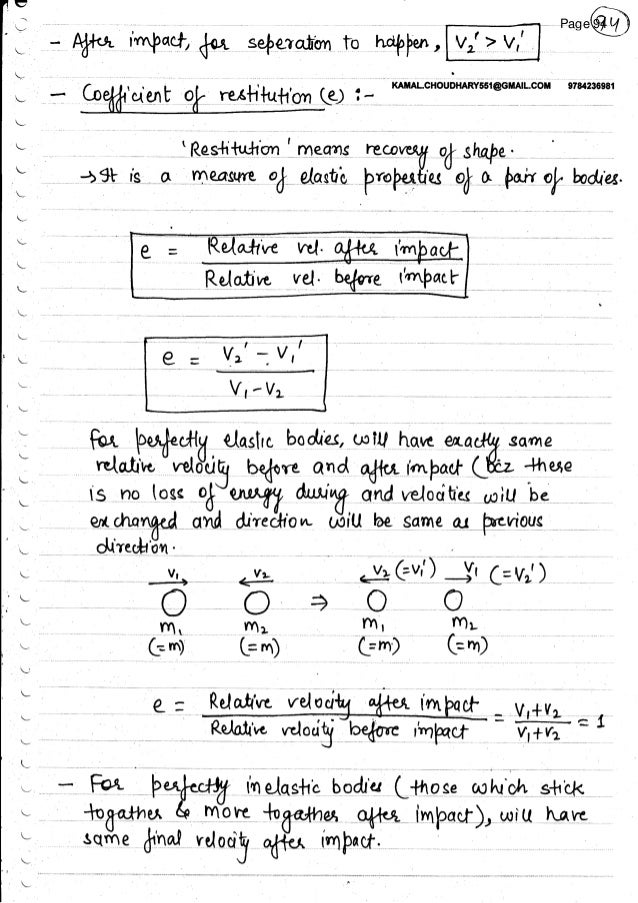 Page 94
- After impact, for seperation to happen, V₂' > V₁'
KAMAL.CHOUDHARY551@GMAIL.COM 9784236981
- Coefficient of restitution (e) :-
'Restitution' means recovery of shape.
→ It is a measure of elastic properties of a pair of bodies.
e = Relative vel. after impact
Relative vel. before impact
e = V₂' - V₁'
V₁ - V₂
For perfectly elastic bodies, will have exactly same
relative velocity before and after impact (bcz there
is no loss of energy during and velocities will be
exchanged and direction will be same as previous
direction.
V₁ V₂ V₂ (=V₁') V₁ (=V₂')
⇒
m₁ m₂ m₁ m₂
(=m) (=m) (=m) (=m)
e = Relative velocity after impact = V₁+V₂ = 1
Relative velocity before impact V₁+V₂
- For perfectly inelastic bodies (those which stick
togather & move togather after impact), will have
same final velocity after impact.